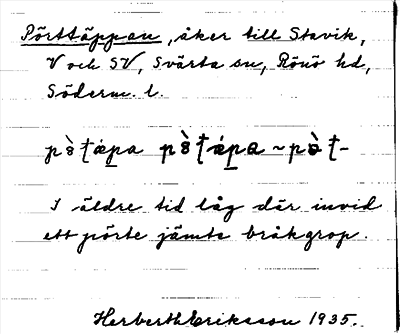 Pörttäppan, åker till Stavik,
V och SV, Svärta sn, Rönö hd,
Söderm. l.
I äldre tid låg där invid
ett pörte jämte bråkgrop.
Herberth Eriksson 1935.